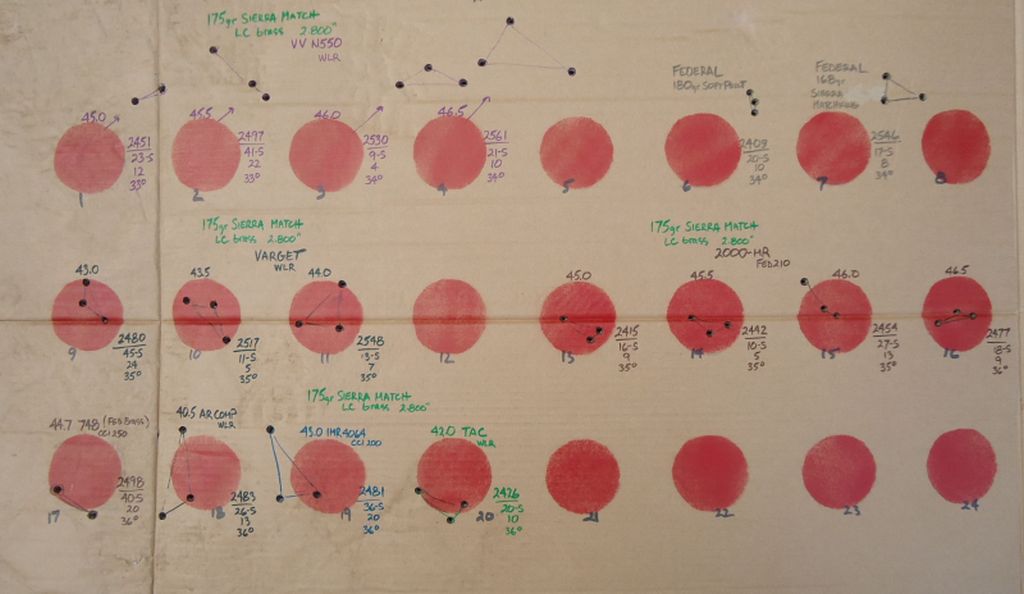 175gr SIERRA MATCH
LC brass 2.800"
VV N550
WLR
FEDERAL
180gr SOFT POINT
FEDERAL
168gr
SIERRA
MATCHKING
45.0
45.5
46.0
46.5
2451
23-S
12
33°
2497
41-S
22
33°
2530
9-S
4
34°
2561
21-S
10
34°
2409
20-S
10
34°
2546
17-S
8
34°
1
2
3
4
5
6
7
8
175gr SIERRA MATCH
LC brass 2.800"
VARGET
WLR
175gr SIERRA MATCH
LC brass 2.800"
2000-MR
FED210
43.0
43.5
44.0
45.0
45.5
46.0
46.5
2480
45-S
24
35°
2517
11-S
5
35°
2548
13-S
7
35°
2415
16-S
9
35°
2442
10-S
5
35°
2454
27-S
13
35°
2477
18-S
9
36°
9
10
11
12
13
14
15
16
175gr SIERRA MATCH
LC brass 2.800"
44.7 748 (FED Brass)
CCI 250
40.5 AR COMP
WLR
43.0 IMR 4064
CCI 200
42.0 TAC
WLR
2498
40-S
20
36°
2483
26-S
13
36°
2481
36-S
20
36°
2426
20-S
10
36°
17
18
19
20
21
22
23
24